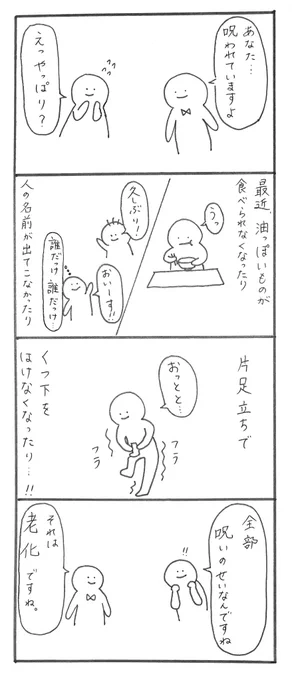 あなた…
呪われていますよ
えっやっぱり?
最近、油っぽいものが
食べられなくなったり
うっ
久しぶり!
おいーす!!
誰だっけ 誰だっけ…
人の名前が出てこなかったり
片足立ちで
おっとと…
フラ
フラ
くつ下を
はけなくなったり…!!
全部
呪いのせいなんですね
!!
それは
老化ですね。